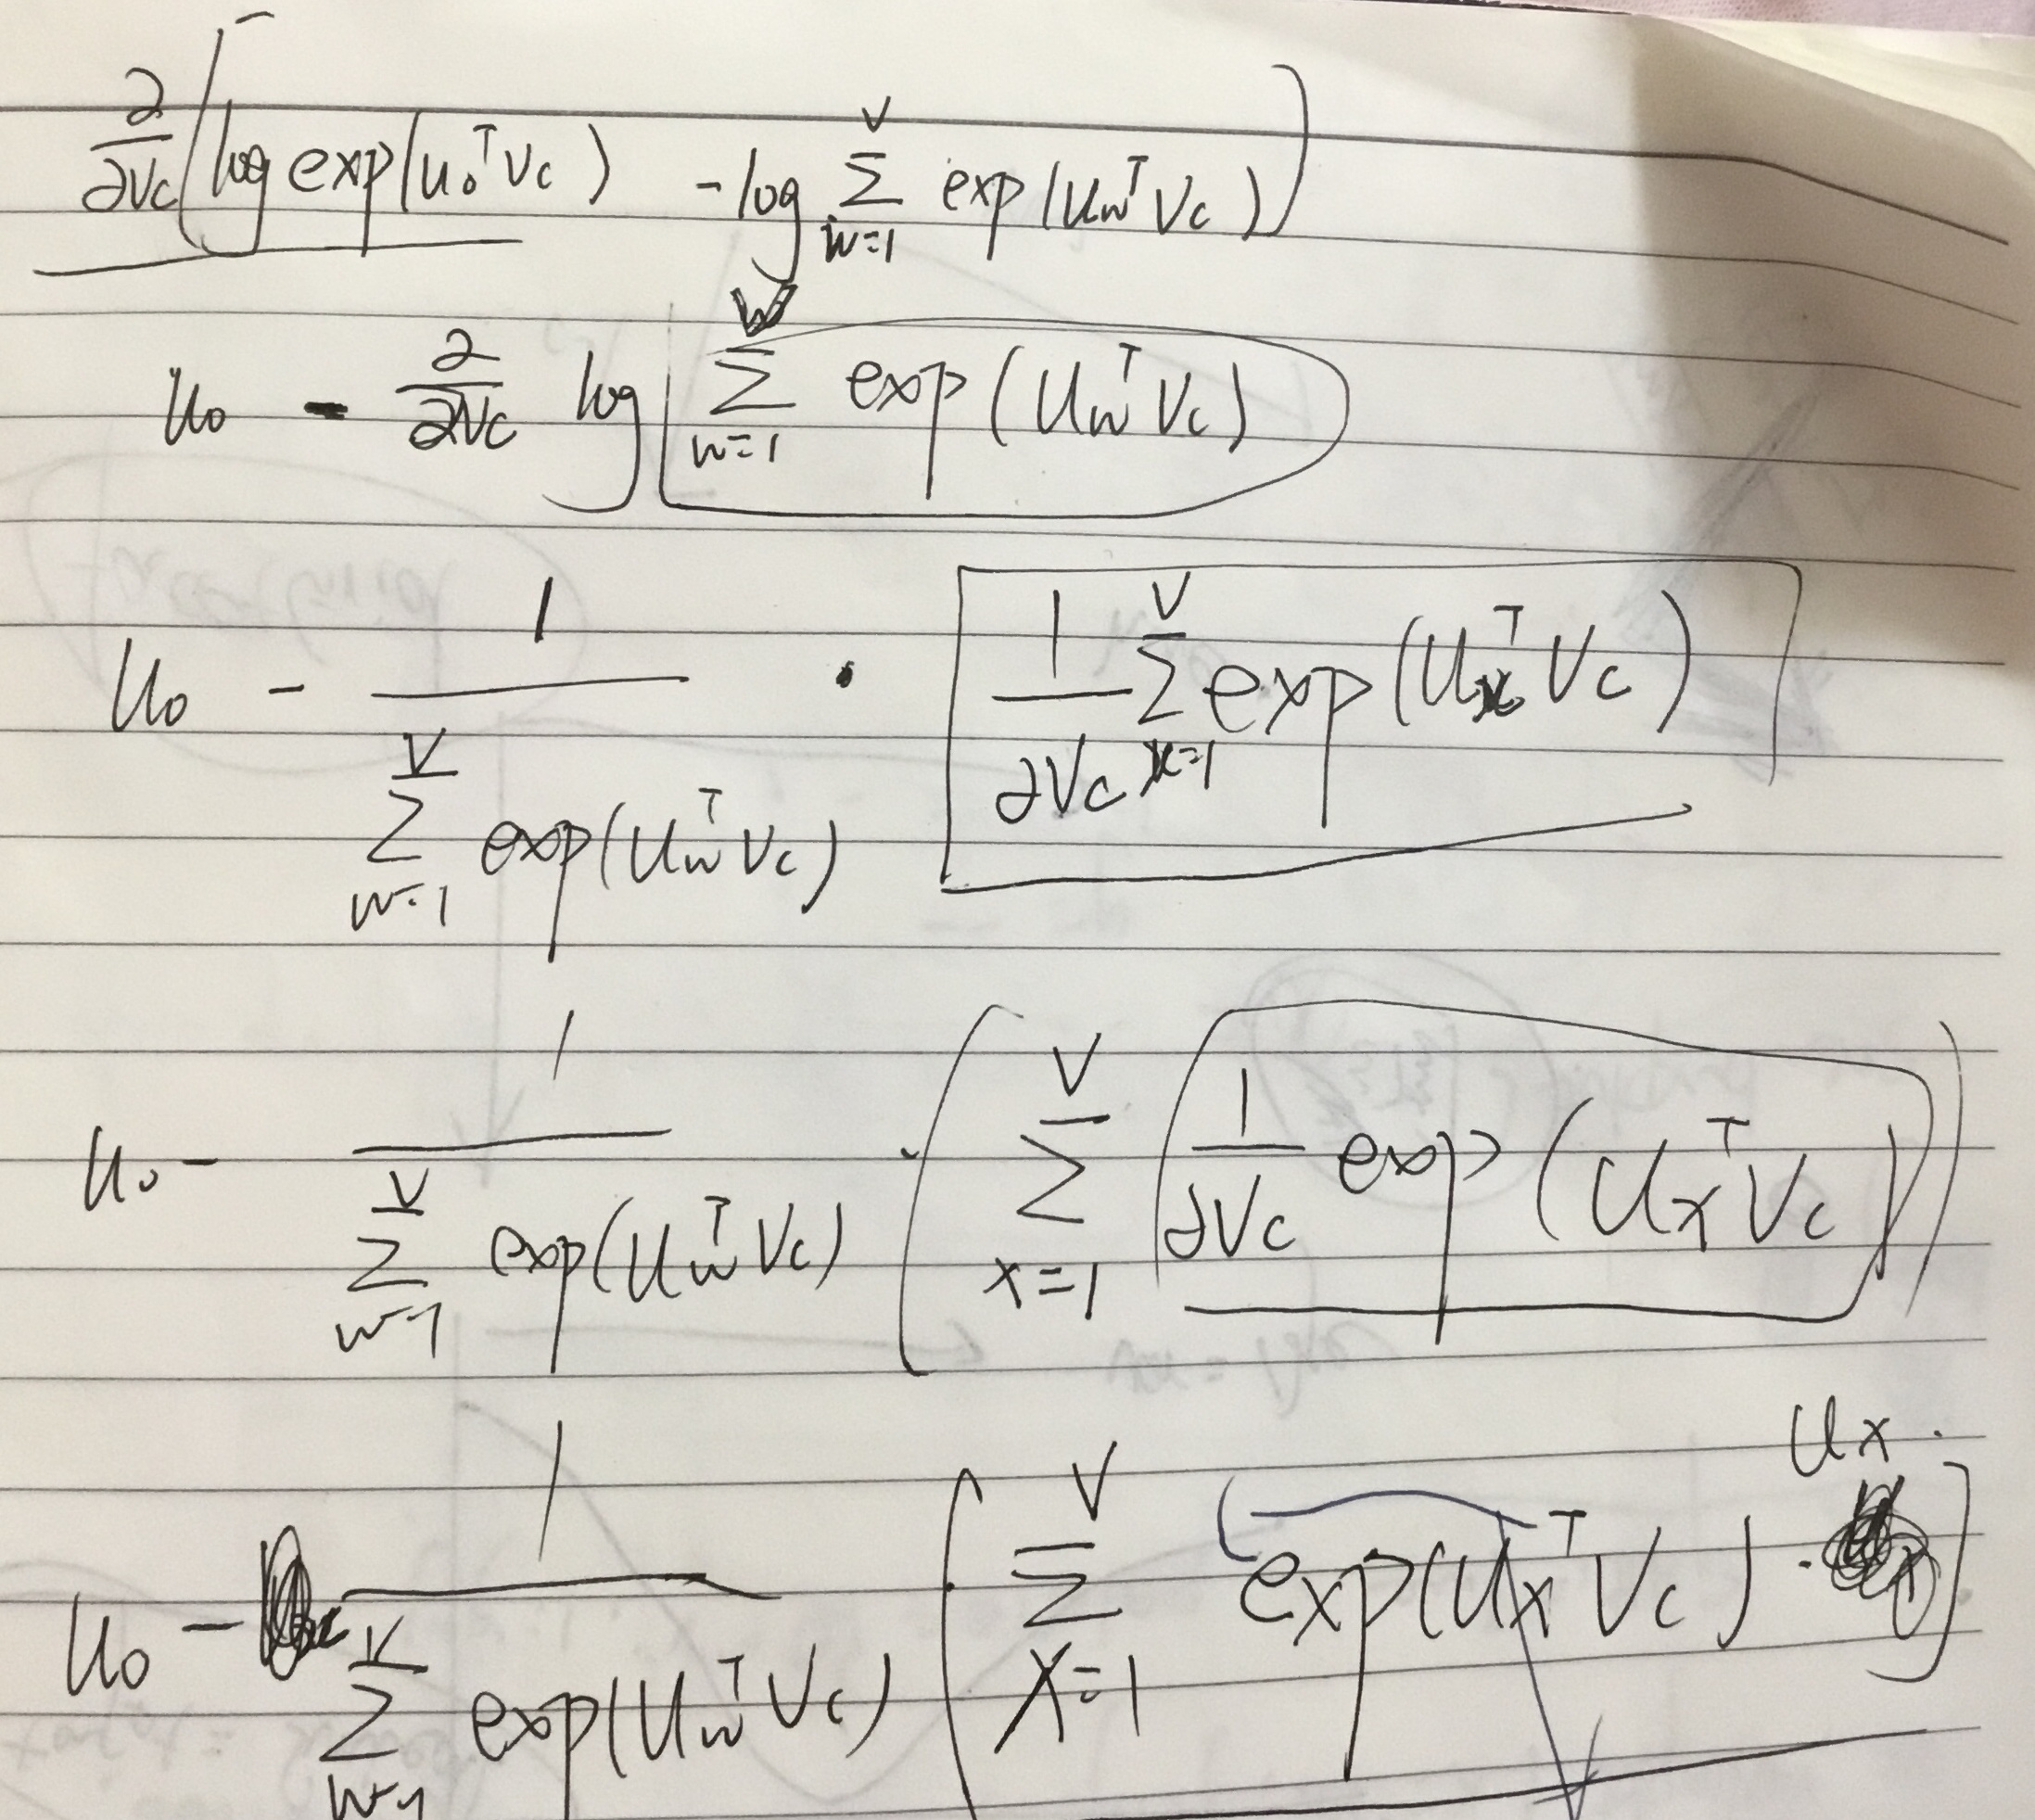 ∂/∂Vc [log exp(u₀ᵀVc) - log Σ_{w=1}^{V} exp(u_wᵀVc)]
u₀ - ∂/∂Vc log [Σ_{w=1} exp(u_wᵀVc)]
u₀ - 1/(Σ_{w=1}^{V} exp(u_wᵀVc)) · [1/∂Vc Σ_{x=1}^{V} exp(u_xᵀVc)]
u₀ - 1/(Σ_{w=1}^{V} exp(u_wᵀVc)) · (Σ_{x=1}^{V} (1/∂Vc exp(u_xᵀVc)))
u₀ - 1/(Σ_{w=1}^{V} exp(u_wᵀVc)) · [Σ_{x=1}^{V} exp(u_xᵀVc) · u_x]